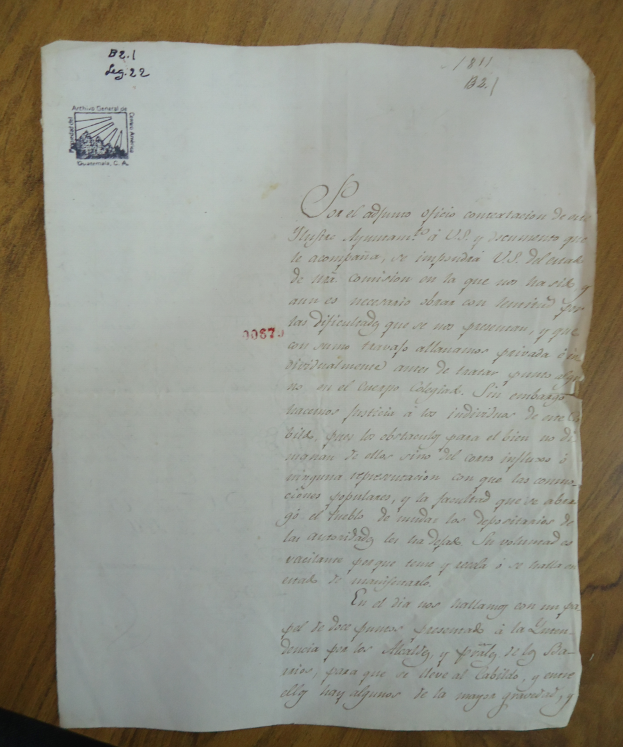 B2.1
Leg. 22
1811
B2.1
Archivo General de
Centro América
Guatemala, C. A.
00879
Por el adjunto oficio contextacion de este
Ilustre Ayuntam.to á V.S. y documento que
le acompaña, se impondrá V.S. del estado
de nra. Comision en la que nos ha sido y
aun es necesario obrar con lentitud por
las dificultades que se nos presentan, y que
con sumo travajo allanamos privada é in
dividualmente antes de tratar punto algu
no en el Cuerpo Colegiado. Sin embargo
hacemos justicia á los individuos de este Ca
bildo, pues los obstaculos para el bien no di
manan de ellos sino del corto influxo ó
ninguna representacion con que las conmo
ciones populares, y la facultad que se abro
gó el Pueblo de mudar los depositarios de
las autoridades les ha dejado. Su voluntad es
vacilante porque teme y recela ó se halla en
estado de manifestarlo.
En el dia nos hallamos con un pa
pel de doce puntos presentado á la Inten
dencia por los Alcaldes, y prales. de los Ba
rrios, para que se lleve al Cabildo, y entre
ellos hay algunos de la mayor gravedad, y